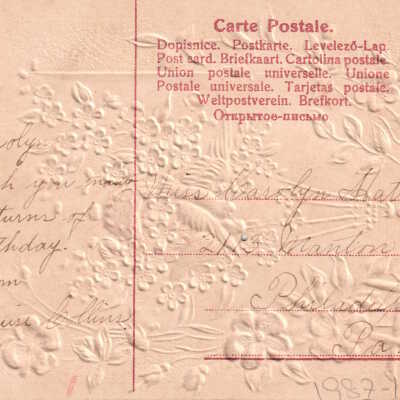 Carte Postale.
Dopisnice. Postkarte. Levelező-Lap
Post card. Briefkaart. Cartolina postale
Union postale universelle. Unione
Postale universale. Tarjetas postale.
Weltpostverein. Brefkort.
Открытое-письмо
rolyn
h you many
turns of
thday.
om
uise Collins
Miss Carolyn Mat
213 Manlon
Philadel
Pa
1987-1